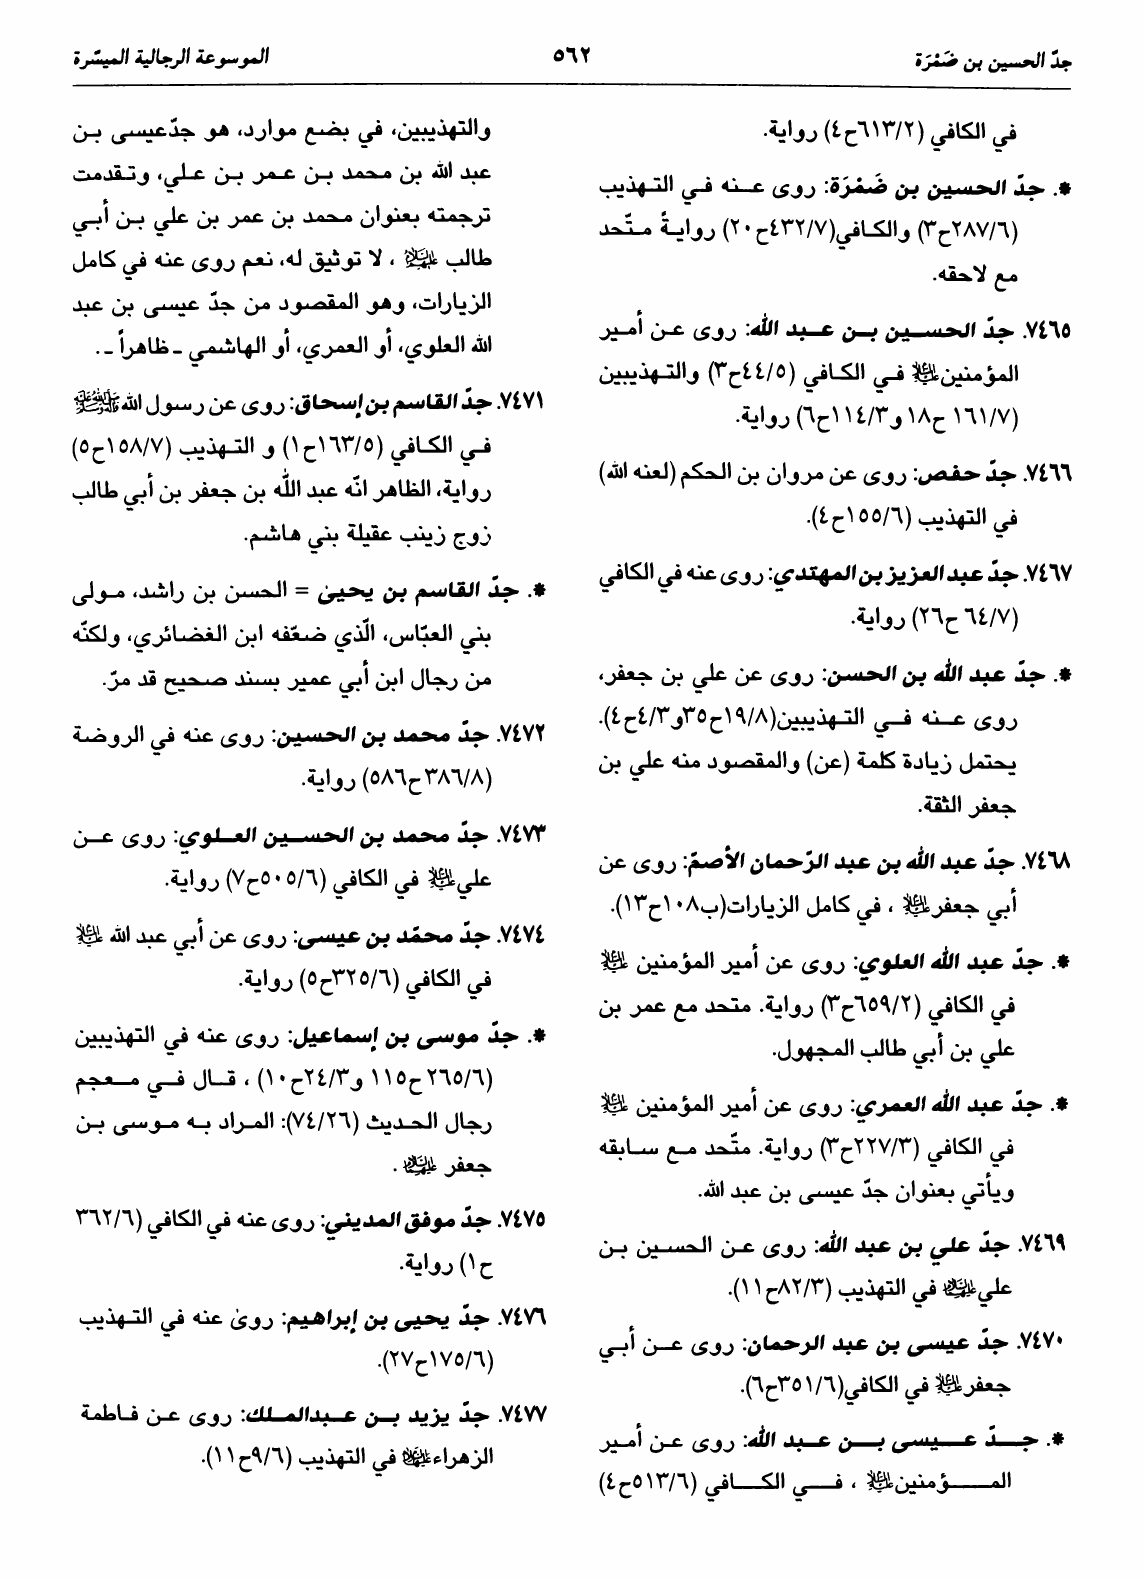 جدّ الحسين بن ضَمْرَة
٥٦٢
الموسوعة الرجالية الميسّرة
في الكافي (٦١٣/٢ح٤) رواية.
*. جدّ الحسين بن ضَمْرَة: روى عنه في التهذيب
(٢٨٧/٦ح٣) والكافي(٤٣٢/٧ح٢٠) روايةً متّحد
مع لاحقه.
٧٤٦٥. جدّ الحسين بن عبد الله: روى عن أمير
المؤمنين عليه السلام في الكافي (٤٤/٥ح٣) والتهذيبين
(١٦١/٧ ح١٨ و١١٤/٣ح٦) رواية.
٧٤٦٦. جدّ حفص: روى عن مروان بن الحكم (لعنه الله)
في التهذيب (١٥٥/٦ح٤).
٧٤٦٧. جدّ عبد العزيز بن المهتدي: روى عنه في الكافي
(٦٤/٧ ح٢٦) رواية.
*. جدّ عبد الله بن الحسن: روى عن علي بن جعفر،
روى عنه في التهذيبين(١٩/٨ح٣٥و٤/٣ح٤).
يحتمل زيادة كلمة (عن) والمقصود منه علي بن
جعفر الثقة.
٧٤٦٨. جدّ عبد الله بن عبد الرّحمان الأصمّ: روى عن
أبي جعفر عليه السلام ، في كامل الزيارات(ب١٠٨ح١٣).
*. جدّ عبد الله العلوي: روى عن أمير المؤمنين عليه السلام
في الكافي (٦٥٩/٢ح٣) رواية. متحد مع عمر بن
علي بن أبي طالب المجهول.
*. جدّ عبد الله العمري: روى عن أمير المؤمنين عليه السلام
في الكافي (٢٢٧/٣ح٣) رواية. متّحد مع سابقه
ويأتي بعنوان جدّ عيسى بن عبد الله.
٧٤٦٩. جدّ علي بن عبد الله: روى عن الحسين بن
علي عليهما السلام في التهذيب (٨٢/٣ح١١).
٧٤٧٠. جدّ عيسى بن عبد الرحمان: روى عن أبي
جعفر عليه السلام في الكافي(٣٥١/٦ح٦).
*. جدّ عيسى بن عبد الله: روى عن أمير
المؤمنين عليه السلام ، في الكافي (٥١٣/٦ح٤)
والتهذيبين، في بضع موارد، هو جدّ عيسى بن
عبد الله بن محمد بن عمر بن علي، وتقدمت
ترجمته بعنوان محمد بن عمر بن علي بن أبي
طالب عليه السلام ، لا توثيق له، نعم روى عنه في كامل
الزيارات، وهو المقصود من جدّ عيسى بن عبد
الله العلوي، أو العمري، أو الهاشمي ـ ظاهراً ـ.
٧٤٧١. جدّ القاسم بن إسحاق: روى عن رسول الله صلى الله عليه وآله
في الكافي (١٦٣/٥ح١) و التهذيب (١٥٨/٧ح٥)
رواية، الظاهر انّه عبد الله بن جعفر بن أبي طالب
زوج زينب عقيلة بني هاشم.
*. جدّ القاسم بن يحيىٰ = الحسن بن راشد، مولى
بني العبّاس، الّذي ضعّفه ابن الغضائري، ولكنّه
من رجال ابن أبي عمير بسند صحيح قد مرّ.
٧٤٧٢. جدّ محمد بن الحسين: روى عنه في الروضة
(٣٨٦/٨ح٥٨٦) رواية.
٧٤٧٣. جدّ محمد بن الحسين العلوي: روى عن
علي عليه السلام في الكافي (٥٠٥/٦ح٧) رواية.
٧٤٧٤. جدّ محمّد بن عيسى: روى عن أبي عبد الله عليه السلام
في الكافي (٣٢٥/٦ح٥) رواية.
*. جدّ موسى بن إسماعيل: روى عنه في التهذيبين
(٢٦٥/٦ ح١١٥ و٢٤/٣ح١٠) ، قال في معجم
رجال الحديث (٧٤/٢٦): المراد به موسى بن
جعفر عليهما السلام .
٧٤٧٥. جدّ موفق المديني: روى عنه في الكافي (٣٦٢/٦
ح١) رواية.
٧٤٧٦. جدّ يحيى بن إبراهيم: روىٰ عنه في التهذيب
(١٧٥/٦ح٢٧).
٧٤٧٧. جدّ يزيد بن عبدالملك: روى عن فاطمة
الزهراء عليها السلام في التهذيب (٩/٦ح١١).